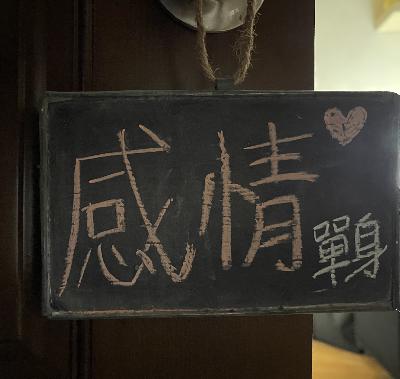 感情
單身